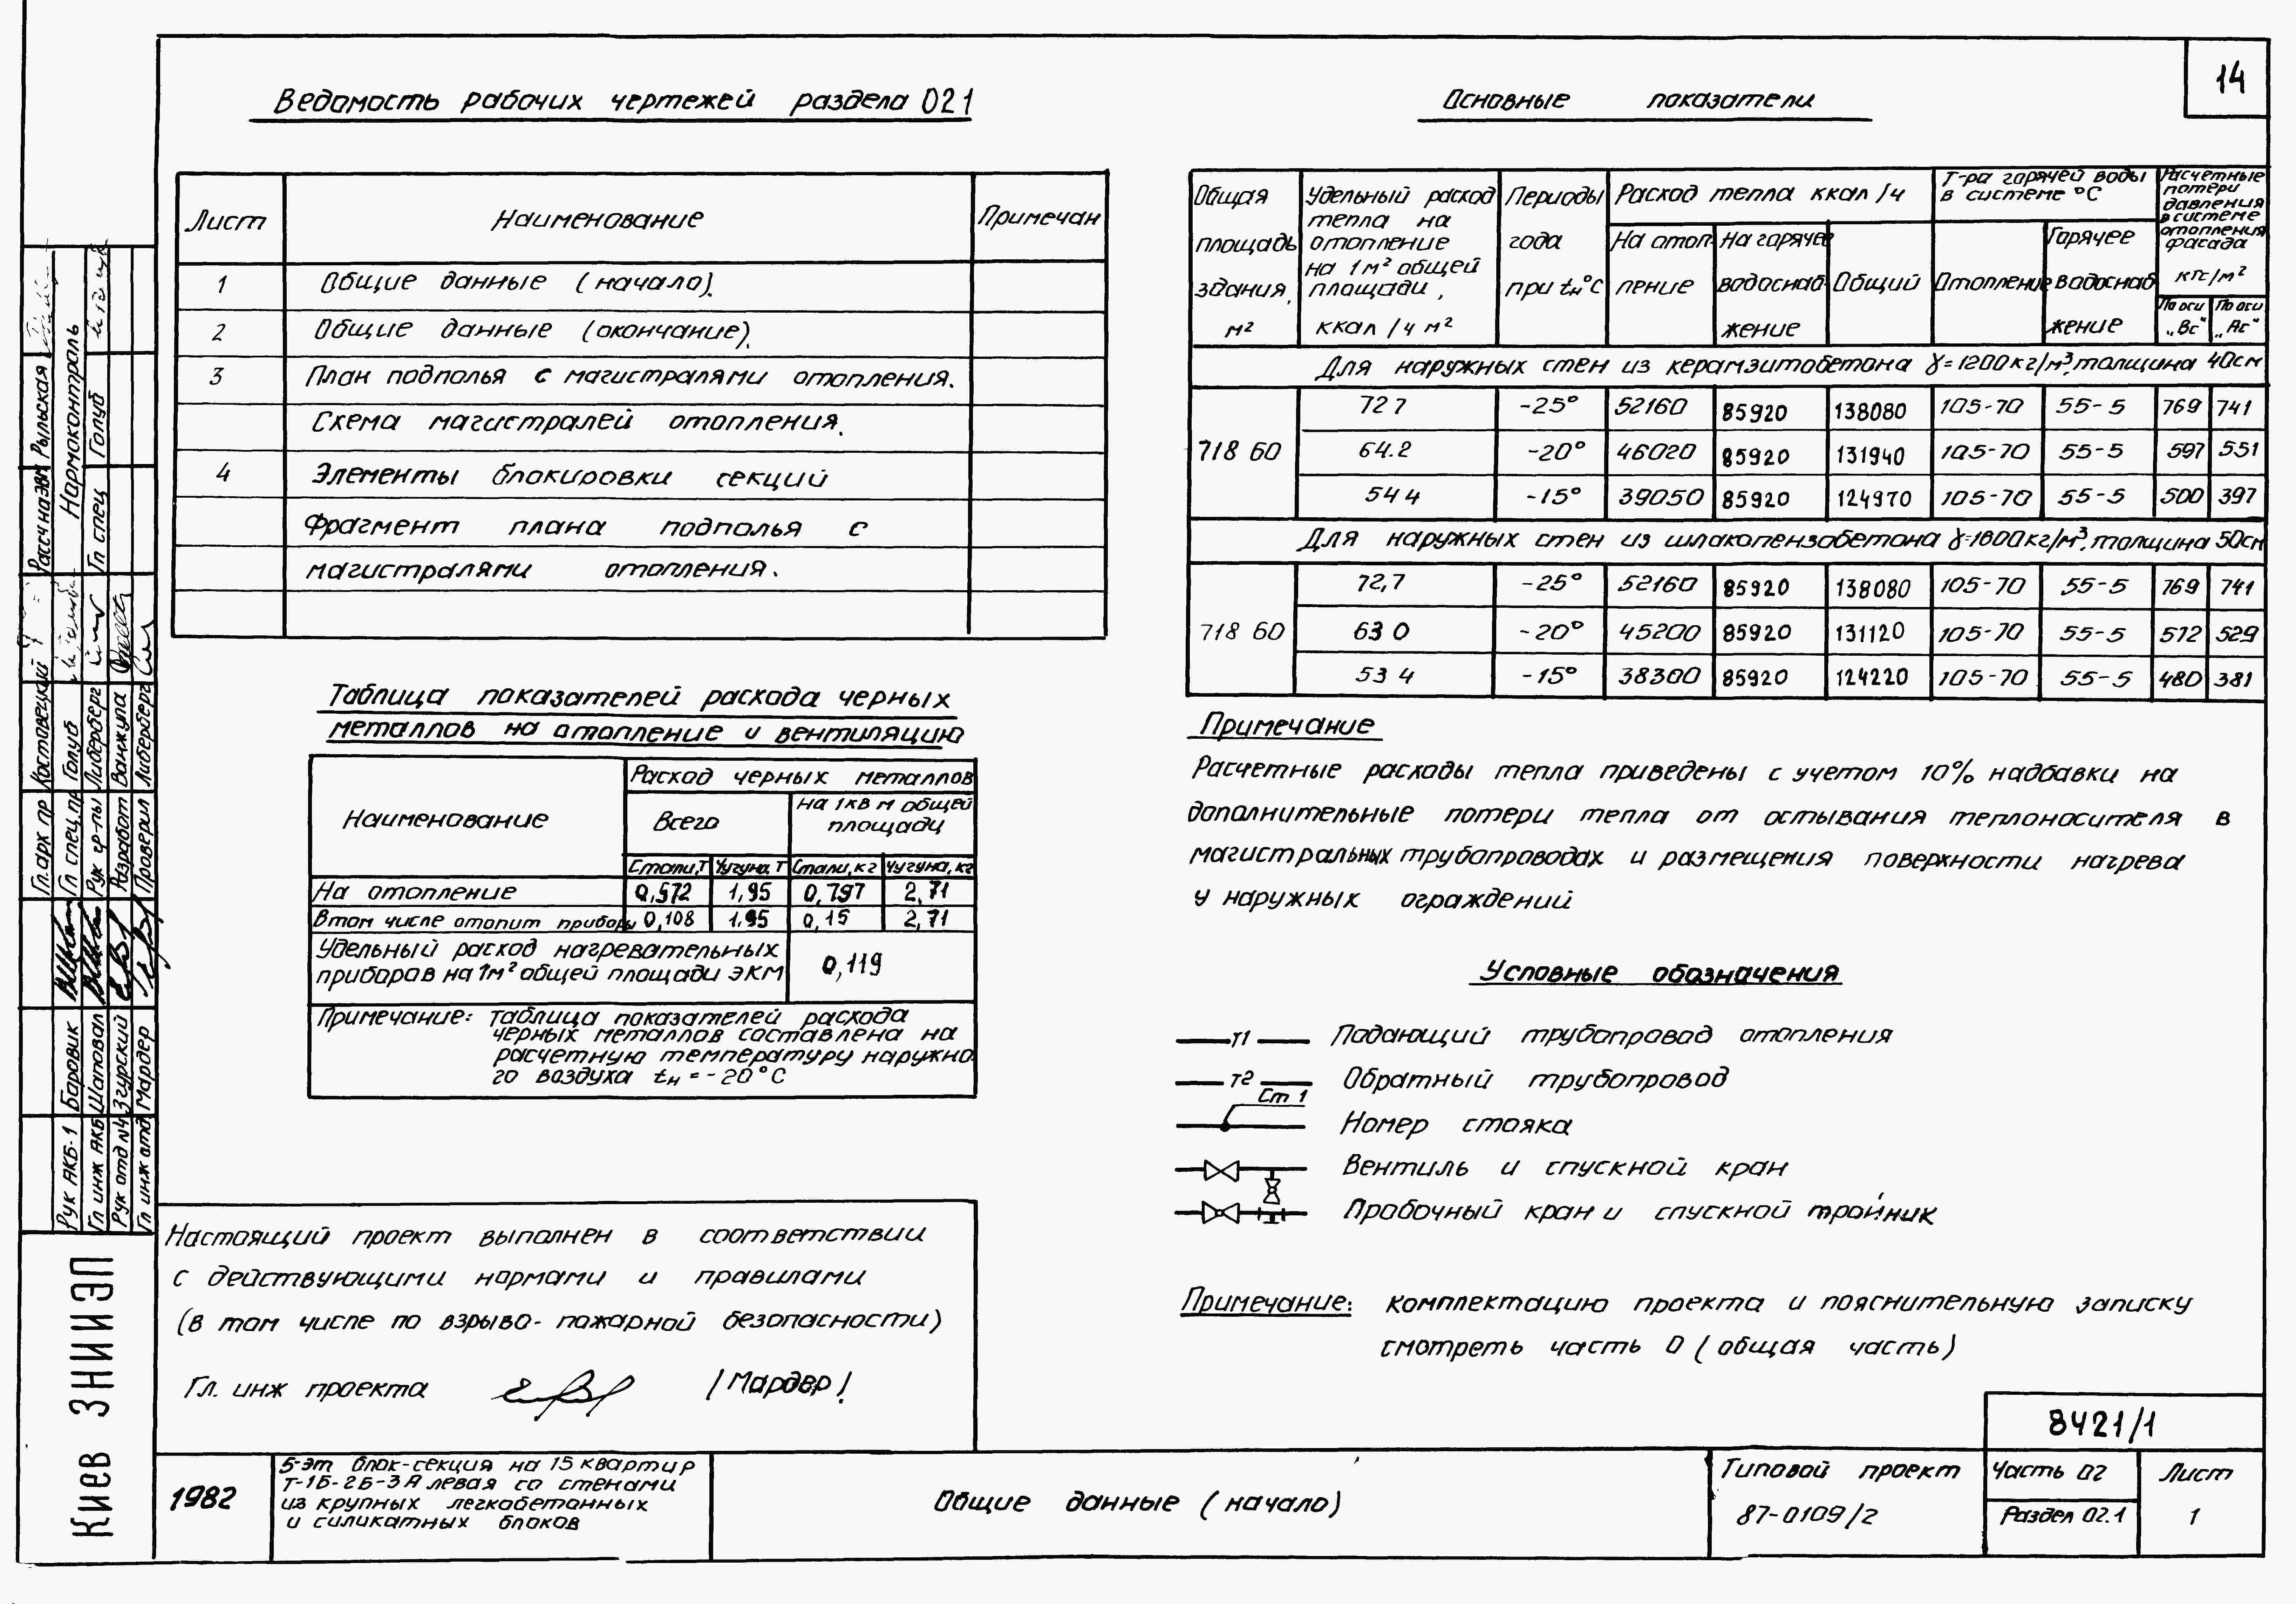 14
Ведомость рабочих чертежей раздела 021
Лист Наименование Примечан
1 Общие данные (начало).
2 Общие данные (окончание).
3 План подполья с магистралями отопления.
Схема магистралей отопления.
4 Элементы блокировки секций
Фрагмент плана подполья с
магистралями отопления.
Таблица показателей расхода черных
металлов на отопление и вентиляцию
Наименование Расход черных металлов
Всего На 1кв м общей площади
Стали,т Чугуна,т Стали,кг Чугуна,кг
На отопление 0,572 1,95 0,797 2,71
В том числе отопит приборы 0,108 1.95 0,15 2,71
Удельный расход нагревательных
приборов на 1м² общей площади ЭКМ 0,119
Примечание: таблица показателей расхода
черных металлов составлена на
расчетную температуру наружно-
го воздуха tн = -20°С
Настоящий проект выполнен в соответствии
с действующими нормами и правилами
(в том числе по взрыво-пожарной безопасности)
Гл. инж проекта /Мардер/
Основные показатели
Общая площадь здания, м²
Удельный расход тепла на отопление на 1м² общей площади, ккал/ч м²
Периоды года при tн°С
Расход тепла ккал/ч
На отопление На горячее водоснабжение Общий
Т-ра горячей воды в системе °С
Отопление Горячее водоснабжение
Расчетные потери давления в системе отопления фасада кгс/м²
По оси „Вс" По оси „Ас"
Для наружных стен из керамзитобетона γ=1200кг/м³, толщина 40см
718 60
72 7 -25° 52160 85920 138080 105-70 55-5 769 741
64.2 -20° 46020 85920 131940 105-70 55-5 597 551
54 4 -15° 39050 85920 124970 105-70 55-5 500 397
Для наружных стен из шлакопензобетона γ=1600кг/м³, толщина 50см
718 60
72,7 -25° 52160 85920 138080 105-70 55-5 769 741
63 0 -20° 45200 85920 131120 105-70 55-5 572 529
53 4 -15° 38300 85920 124220 105-70 55-5 480 381
Примечание
Расчетные расходы тепла приведены с учетом 10% надбавки на
дополнительные потери тепла от остывания теплоносителя в
магистральных трубопроводах и размещения поверхности нагрева
у наружных ограждений
Условные обозначения
Т1 Подающий трубопровод отопления
Т2 Обратный трубопровод
Ст 1 Номер стояка
Вентиль и спускной кран
Пробочный кран и спускной тройник
Примечание: комплектацию проекта и пояснительную записку
смотреть часть 0 (общая часть)
8421/1
1982
5-эт блок-секция на 15 квартир
Т-1Б-2Б-3А левая со стенами
из крупных легкобетонных
и силикатных блоков
Общие данные (начало)
Типовой проект
87-0109/2
Часть 02
Раздел 02.1
Лист
1
Киев ЗНИИЭП
Рук АКБ-1 Боровик
Гл инж АКБ Шаповал
Рук отд №4 Згурский
Гл инж отд Мардер
Гл.арх пр Костовецкий
Гл спец.пр Голуб
Рук гр-пы Либерберг
Разработ Ванжула
Проверил Либерберг
Рассч на ЭВМ Рыльская
Нормоконтроль
Гл спец Голуб